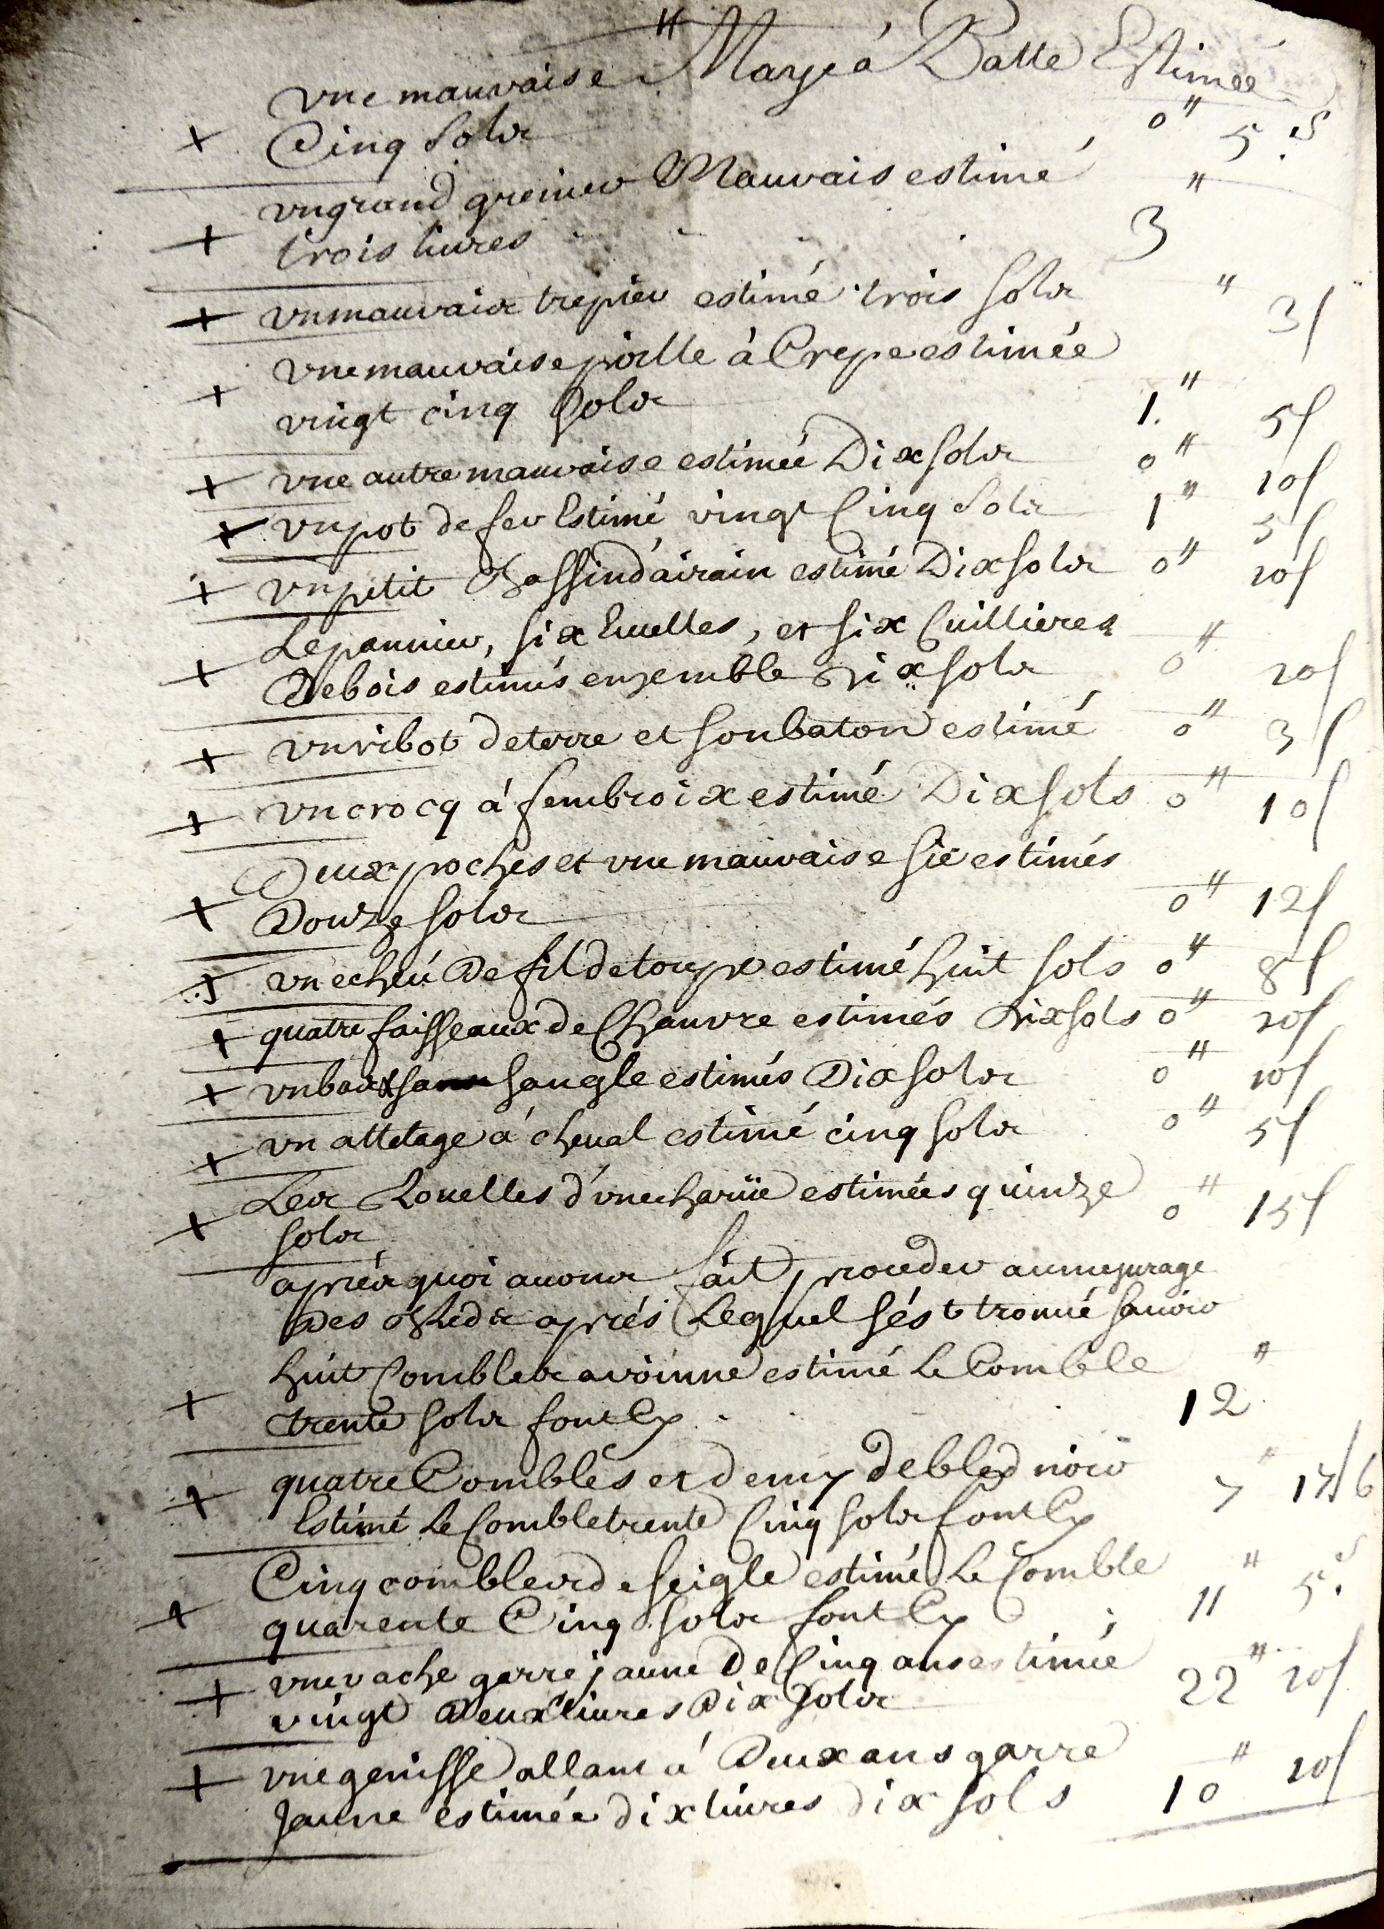 "
vne mauvaise Maye á Patte Estimée
+ Cinq Sols 0" 5 s
vn grand grenier Mauvais estimé
+ trois livres 3"
+ vn mauvais trepier estimé trois sols " 3 s
vne mauvaise poille à Crepe estimée
+ vingt cinq sols 1." 5 s
+ vne autre mauvaise estimée Dix sols 0" 10 s
+ vn pot de fer Estimé vingt Cinq sols 1" 5 s
+ vn petit Bassin d'airain estimé Dix sols 0" 10 s
Le pannier, six Ecuelles, et six Cuillieres
+ De bois estimés ensemble Dix sols 0" 10 s
+ vn ribot de terre et son baton estimé 0" 3 s
+ vn crocq á fembroix estimé Dix sols 0" 10 s
Deux poches et vne mauvaise sie estimés
+ Douze sols 0" 12 s
+ vn echeú De fil de toupe estimé huit sols 0" 8 s
+ quatre faisseaux de Chanvre estimés Dix sols 0" 10 s
+ vn bast sangle estimés Dix sols 0" 10 s
+ vn attelage á cheval estimé cinq sols 0" 5 s
Les Rouelles d'vne charüe estimées quinze
+ sols 0" 15 s
aprés quoi avons fait proceder au mezurage
Des Bleds aprés Lequel s'ést trouvé savoir
huit Combles avoinne estimé Le Comble
+ trente sols font Cy 12"
+ quatre Combles et demy de bled noir
Estimé Le Comble trente Cinq sols font Cy 7" 17 s 6
Cinq combles de seigle estimé Le Comble
+ quarente Cinq sols font Cy 11" 5 s
vne vache garre jaune De Cinq ans estimée
+ vingt Deux livres Dix sols 22" 10 s
+ vne genisse allant á Deux ans garre
Jaune estimée dix livres dix sols 10" 10 s